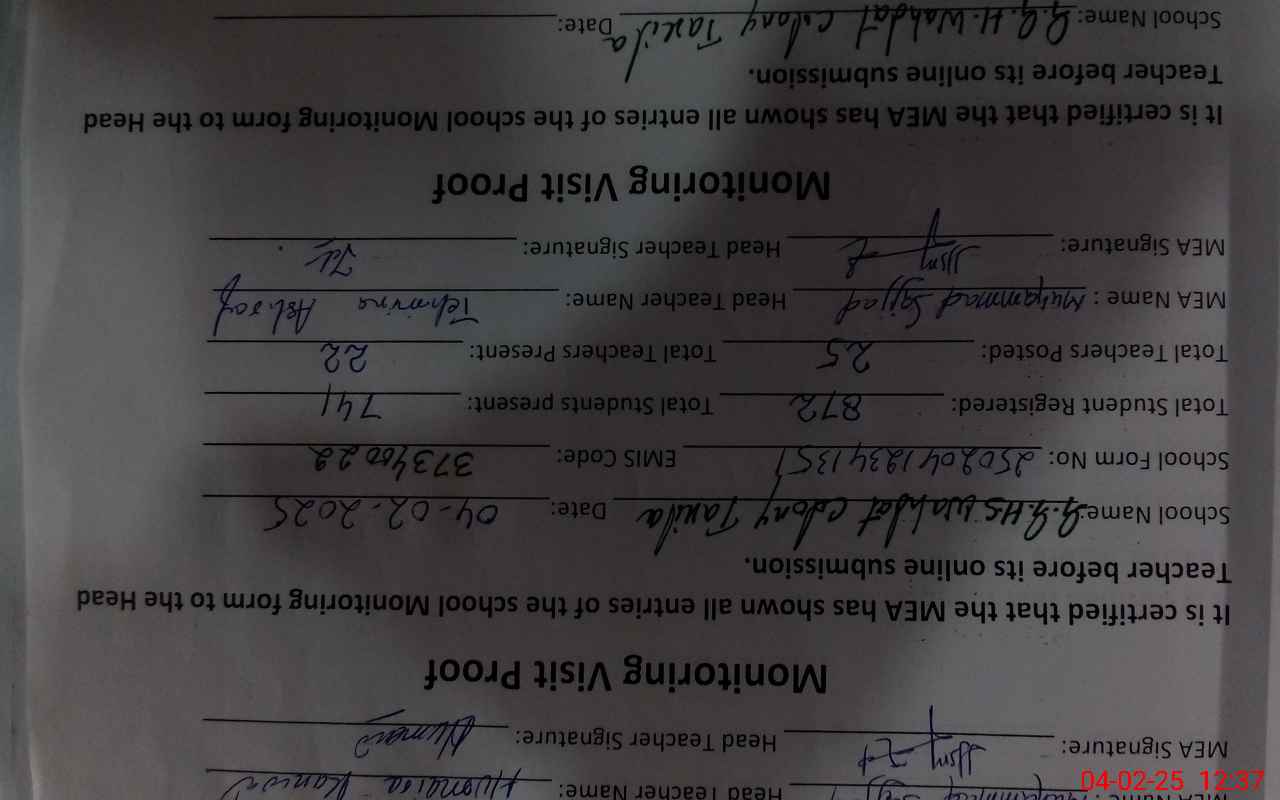 MEA Name : Muhammad Head Teacher Name: Humaira
MEA Signature: Head Teacher Signature: Humaira
Monitoring Visit Proof
It is certified that the MEA has shown all entries of the school Monitoring form to the Head
Teacher before its online submission.
School Name: G.G.HS Wahdat Colony Taxila Date: 04-02-2025
School Form No: EMIS Code: 37340022
Total Student Registered: 872 Total Students present: 741
Total Teachers Posted: 25 Total Teachers Present: 22
MEA Name : Muhammad Sajjad Head Teacher Name: Tehmina Ashraf
MEA Signature: Head Teacher Signature:
Monitoring Visit Proof
It is certified that the MEA has shown all entries of the school Monitoring form to the Head
Teacher before its online submission.
School Name: G.G.H. Wahdat Colony Taxila Date:
04-02-25 12:37